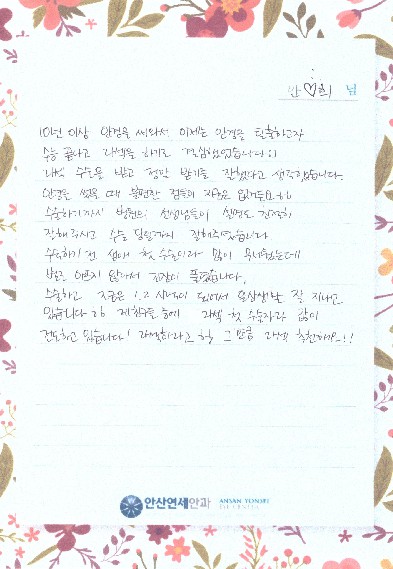 안♡희 님
10년 이상 안경을 써와서 이제는 안경을 탈출하고자
수능 끝나고 라섹을 하기로 결심했었습니다!!
라섹 수술을 받고 정말 받기를 잘했다고 생각했습니다.
안경을 썼을 때 불편한 점들이 지금은 없어졌으며
수술하기까지 병원의 선생님들이 설명도 친절히
잘해주시고 수술 당일까지 잘해주셨습니다
수술하기 전 생애 첫 수술이라 많이 무서웠는데
별로 아프지 않아서 긴장이 풀렸습니다.
수술하고 지금은 1.2 시력이 되어서 일상생활 잘 지내고
있습니다 제 친구들 중에 라섹 첫 수술자라 많이
전도하고 있습니다! 라섹하라고 할 그만큼 라섹 추천해요!!
안산연세안과
ANSAN YONSEI
EYE CENTER